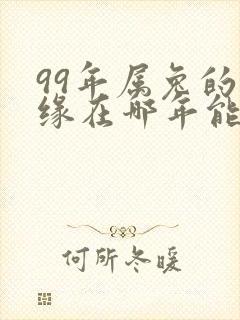 99年属兔的
缘在哪年能
何所冬暖